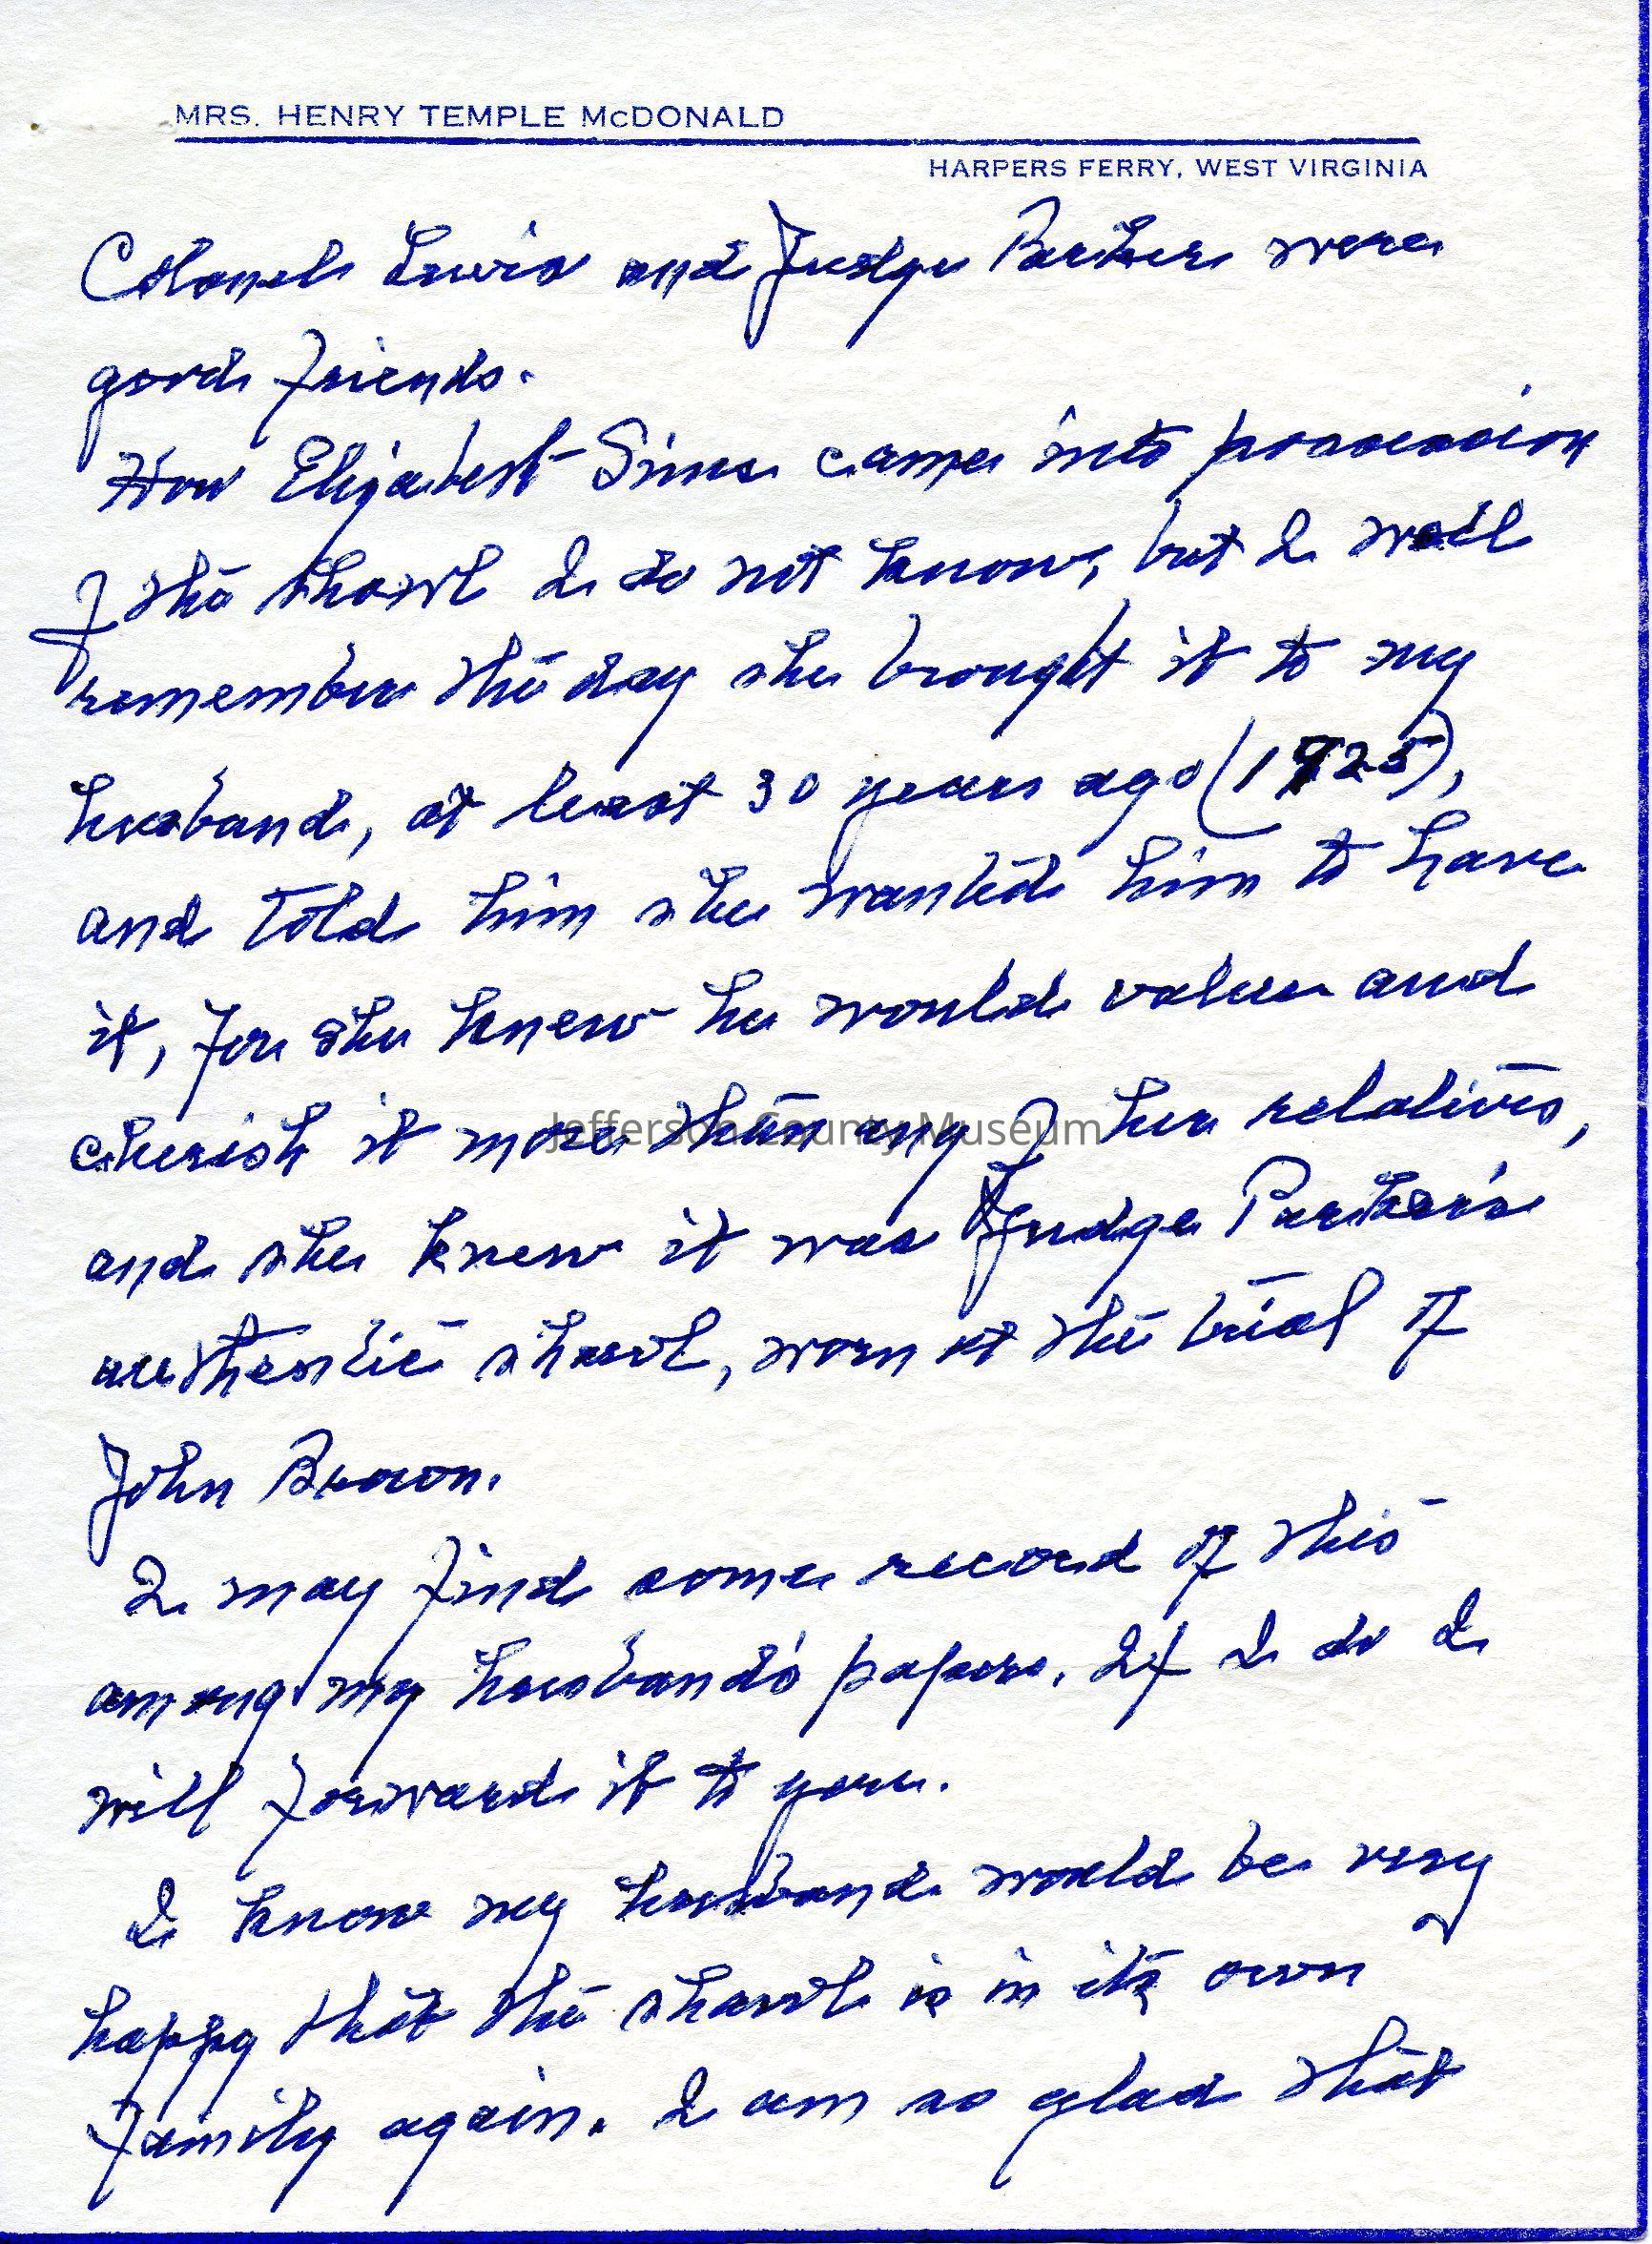 MRS. HENRY TEMPLE McDONALD
HARPERS FERRY, WEST VIRGINIA
Colonel Lewis and Judge Parker were
good friends.
How Elizabeth Sims came into possession
of the shawl I do not know, but I well
remember the day she brought it to my
husband, at least 30 years ago (1925),
and told him she wanted him to have
it, for she knew he would value and
cherish it more than any of her relatives,
Jefferson County Museum
and she knew it was Judge Parker's
authentic shawl, worn at the trial of
John Brown.
I may find some record of this
among my husband's papers. If I do I
will forward it to you.
I know my husband would be very
happy that the shawl is in its own
family again. I am so glad that